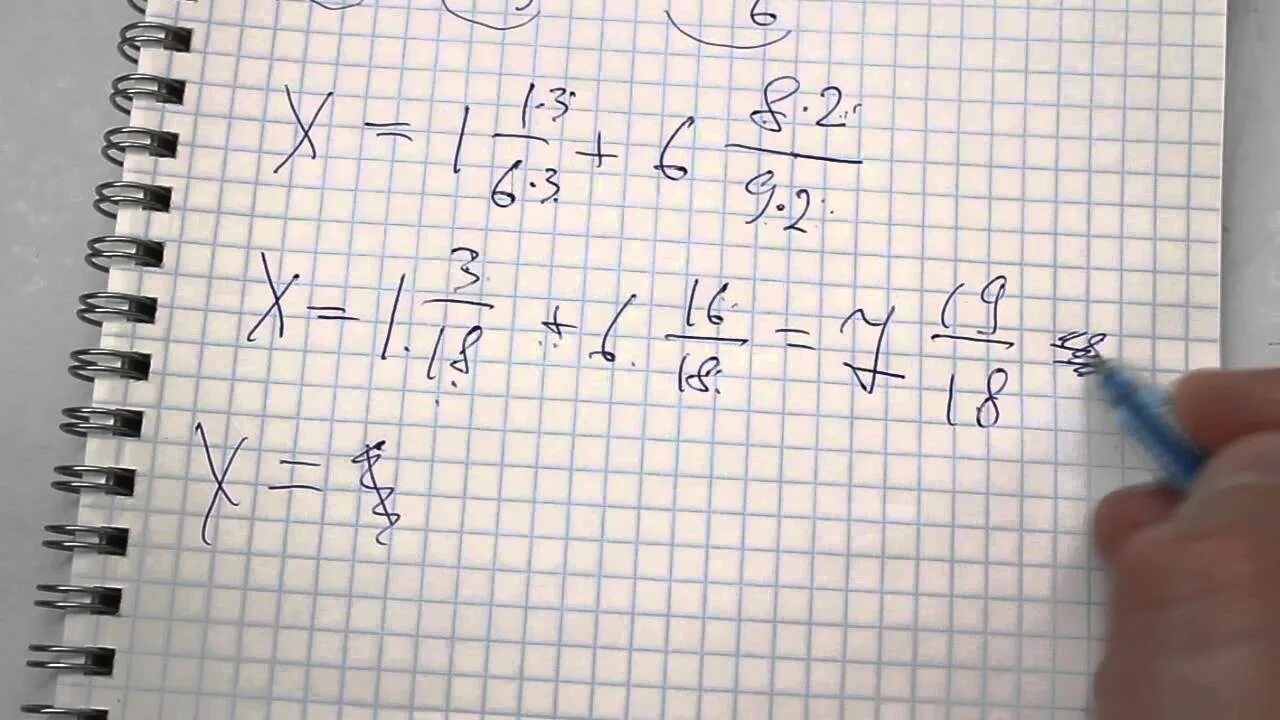 6
X = 1 1·3/6·3 + 6 8·2/9·2
X = 1 3/18 + 6 16/18 = 7 19/18 =
X =